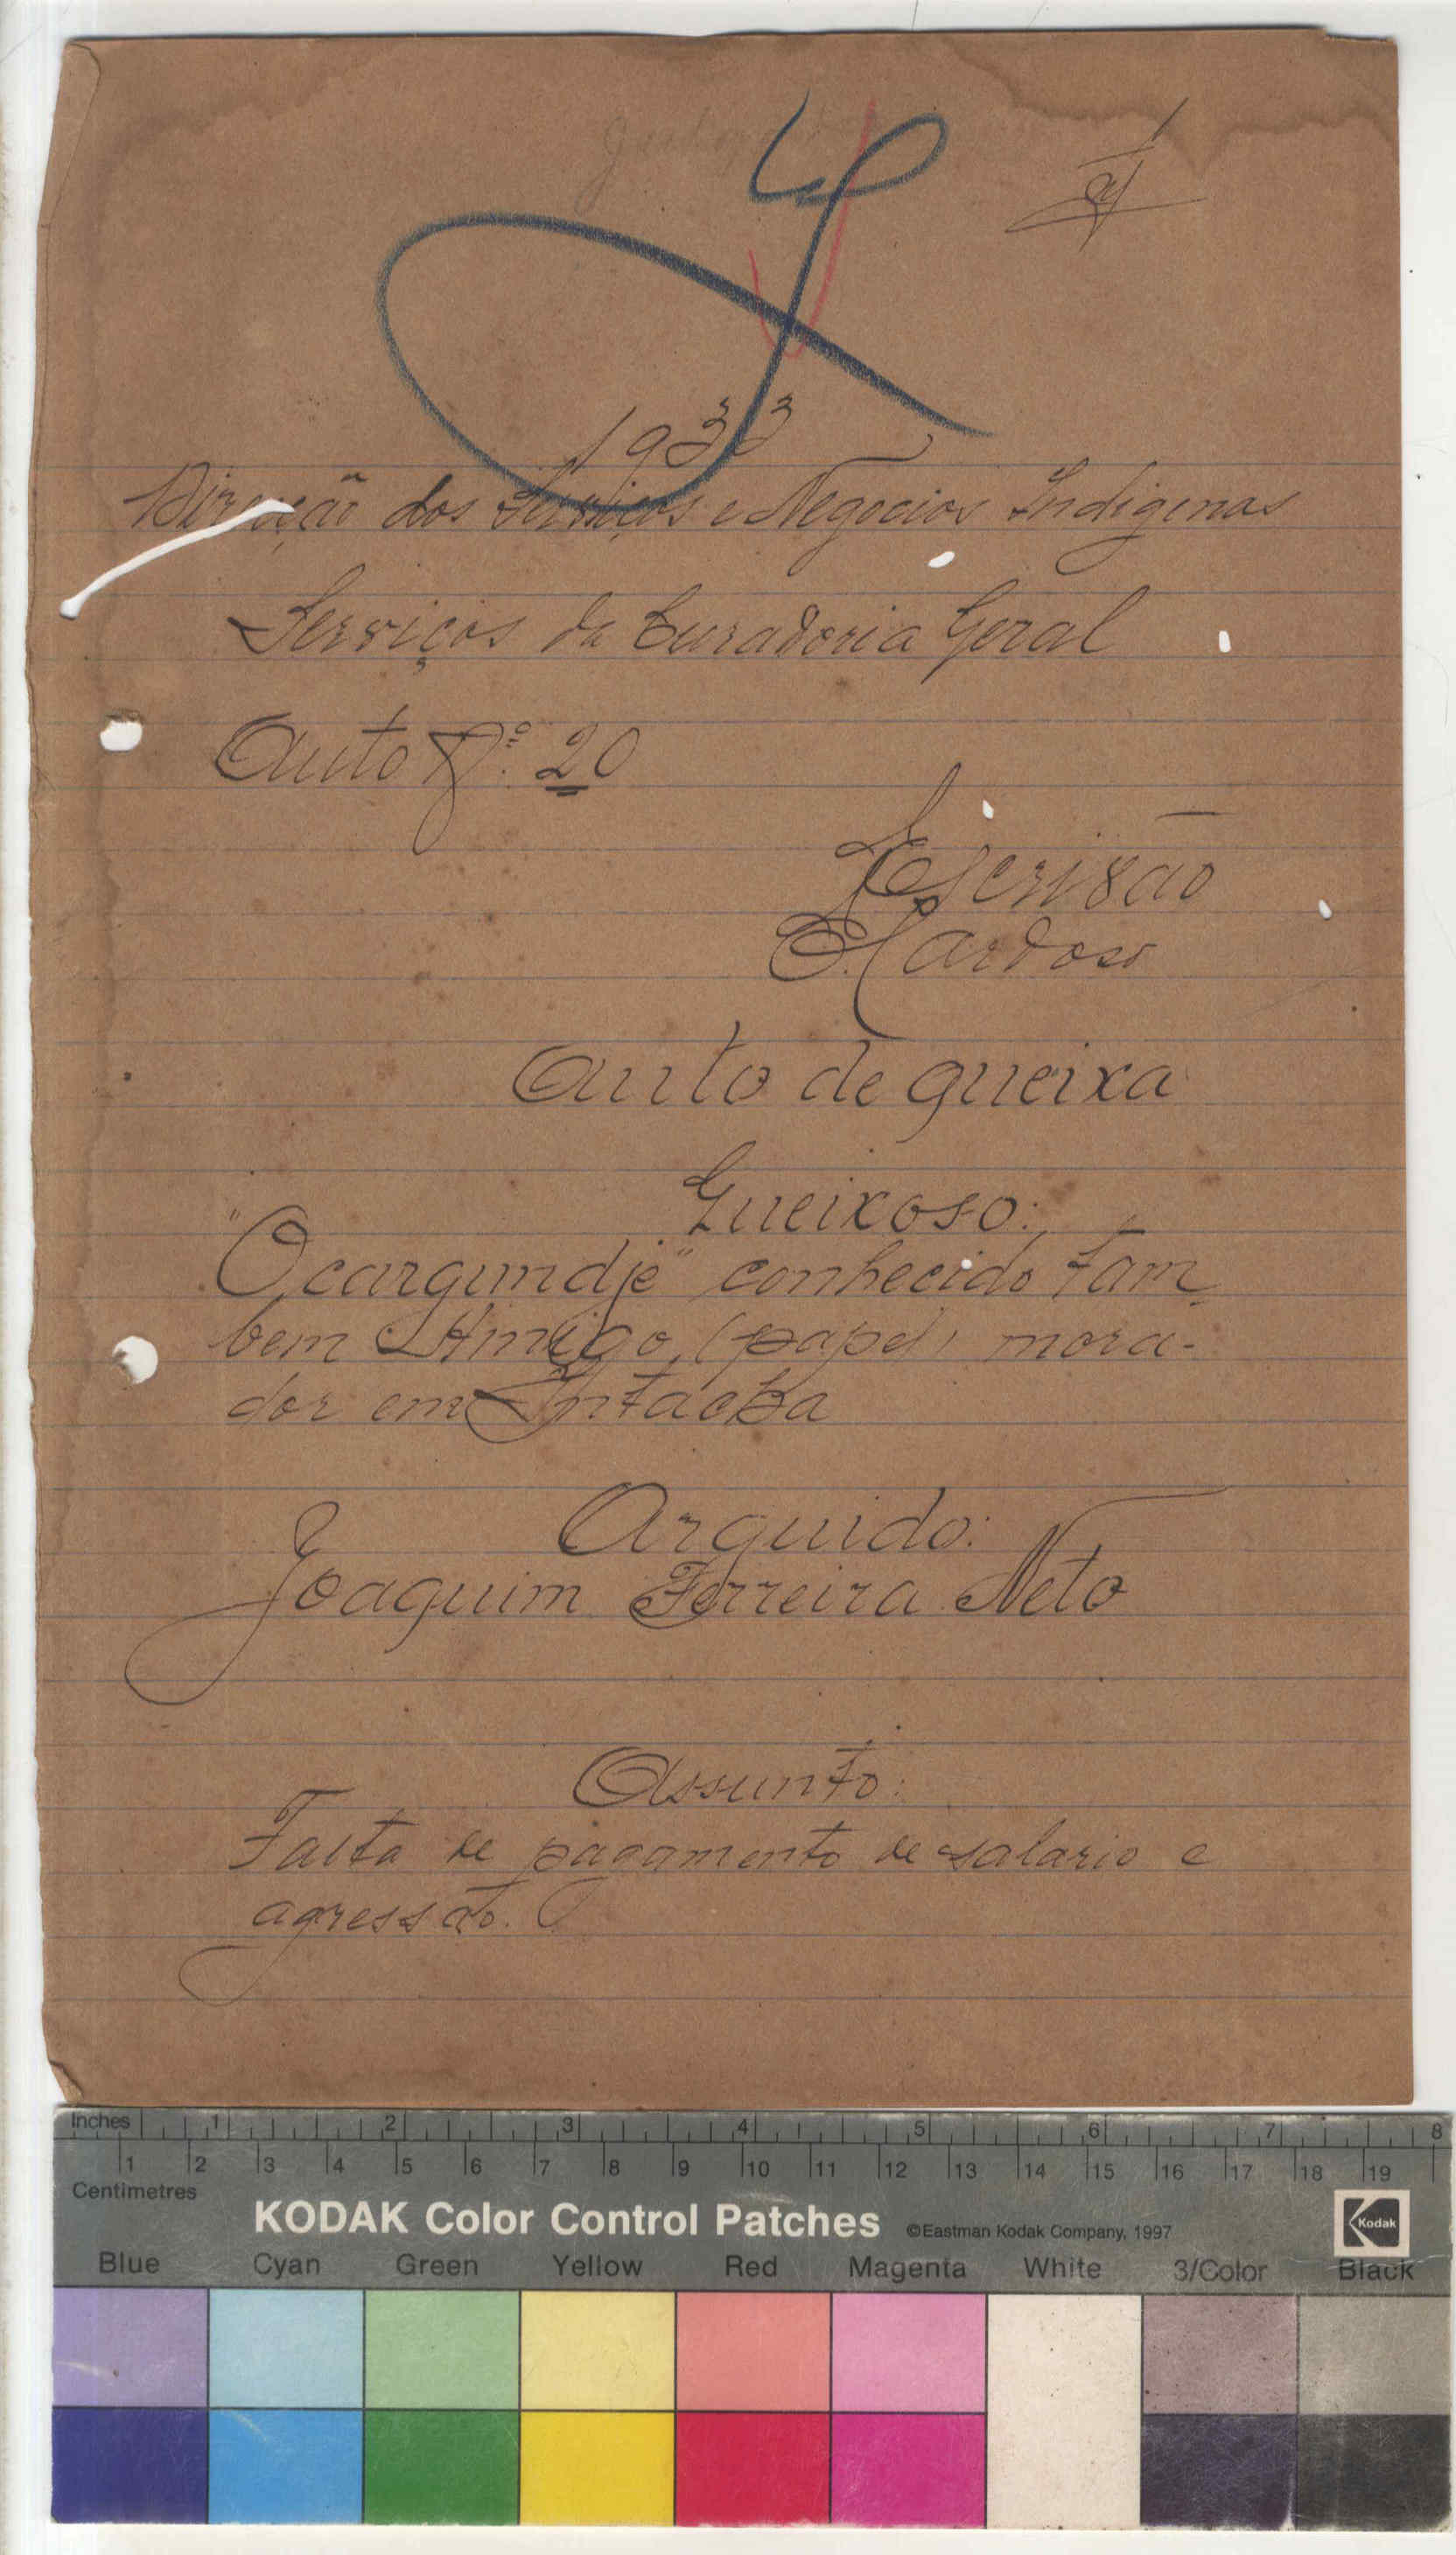 1933
Direcção dos Serviços e Negocios Indigenas
Serviços da Curadoria Geral
Auto Nº. 20
Escrivão
Cardoso
Auto de queixa
Queixoso:
"Ocargundjé" conhecido tam
bem Amigo, (papel) mora-
dor em
Arguido:
Joaquim Ferreira Neto
Assunto:
Falta de pagamento de salario e
agressão.
Inches 1 2 3 4 5 6 7 8
1 2 3 4 5 6 7 8 9 10 11 12 13 14 15 16 17 18 19
Centimetres
KODAK Color Control Patches ©Eastman Kodak Company, 1997 Kodak
Blue Cyan Green Yellow Red Magenta White 3/Color Black